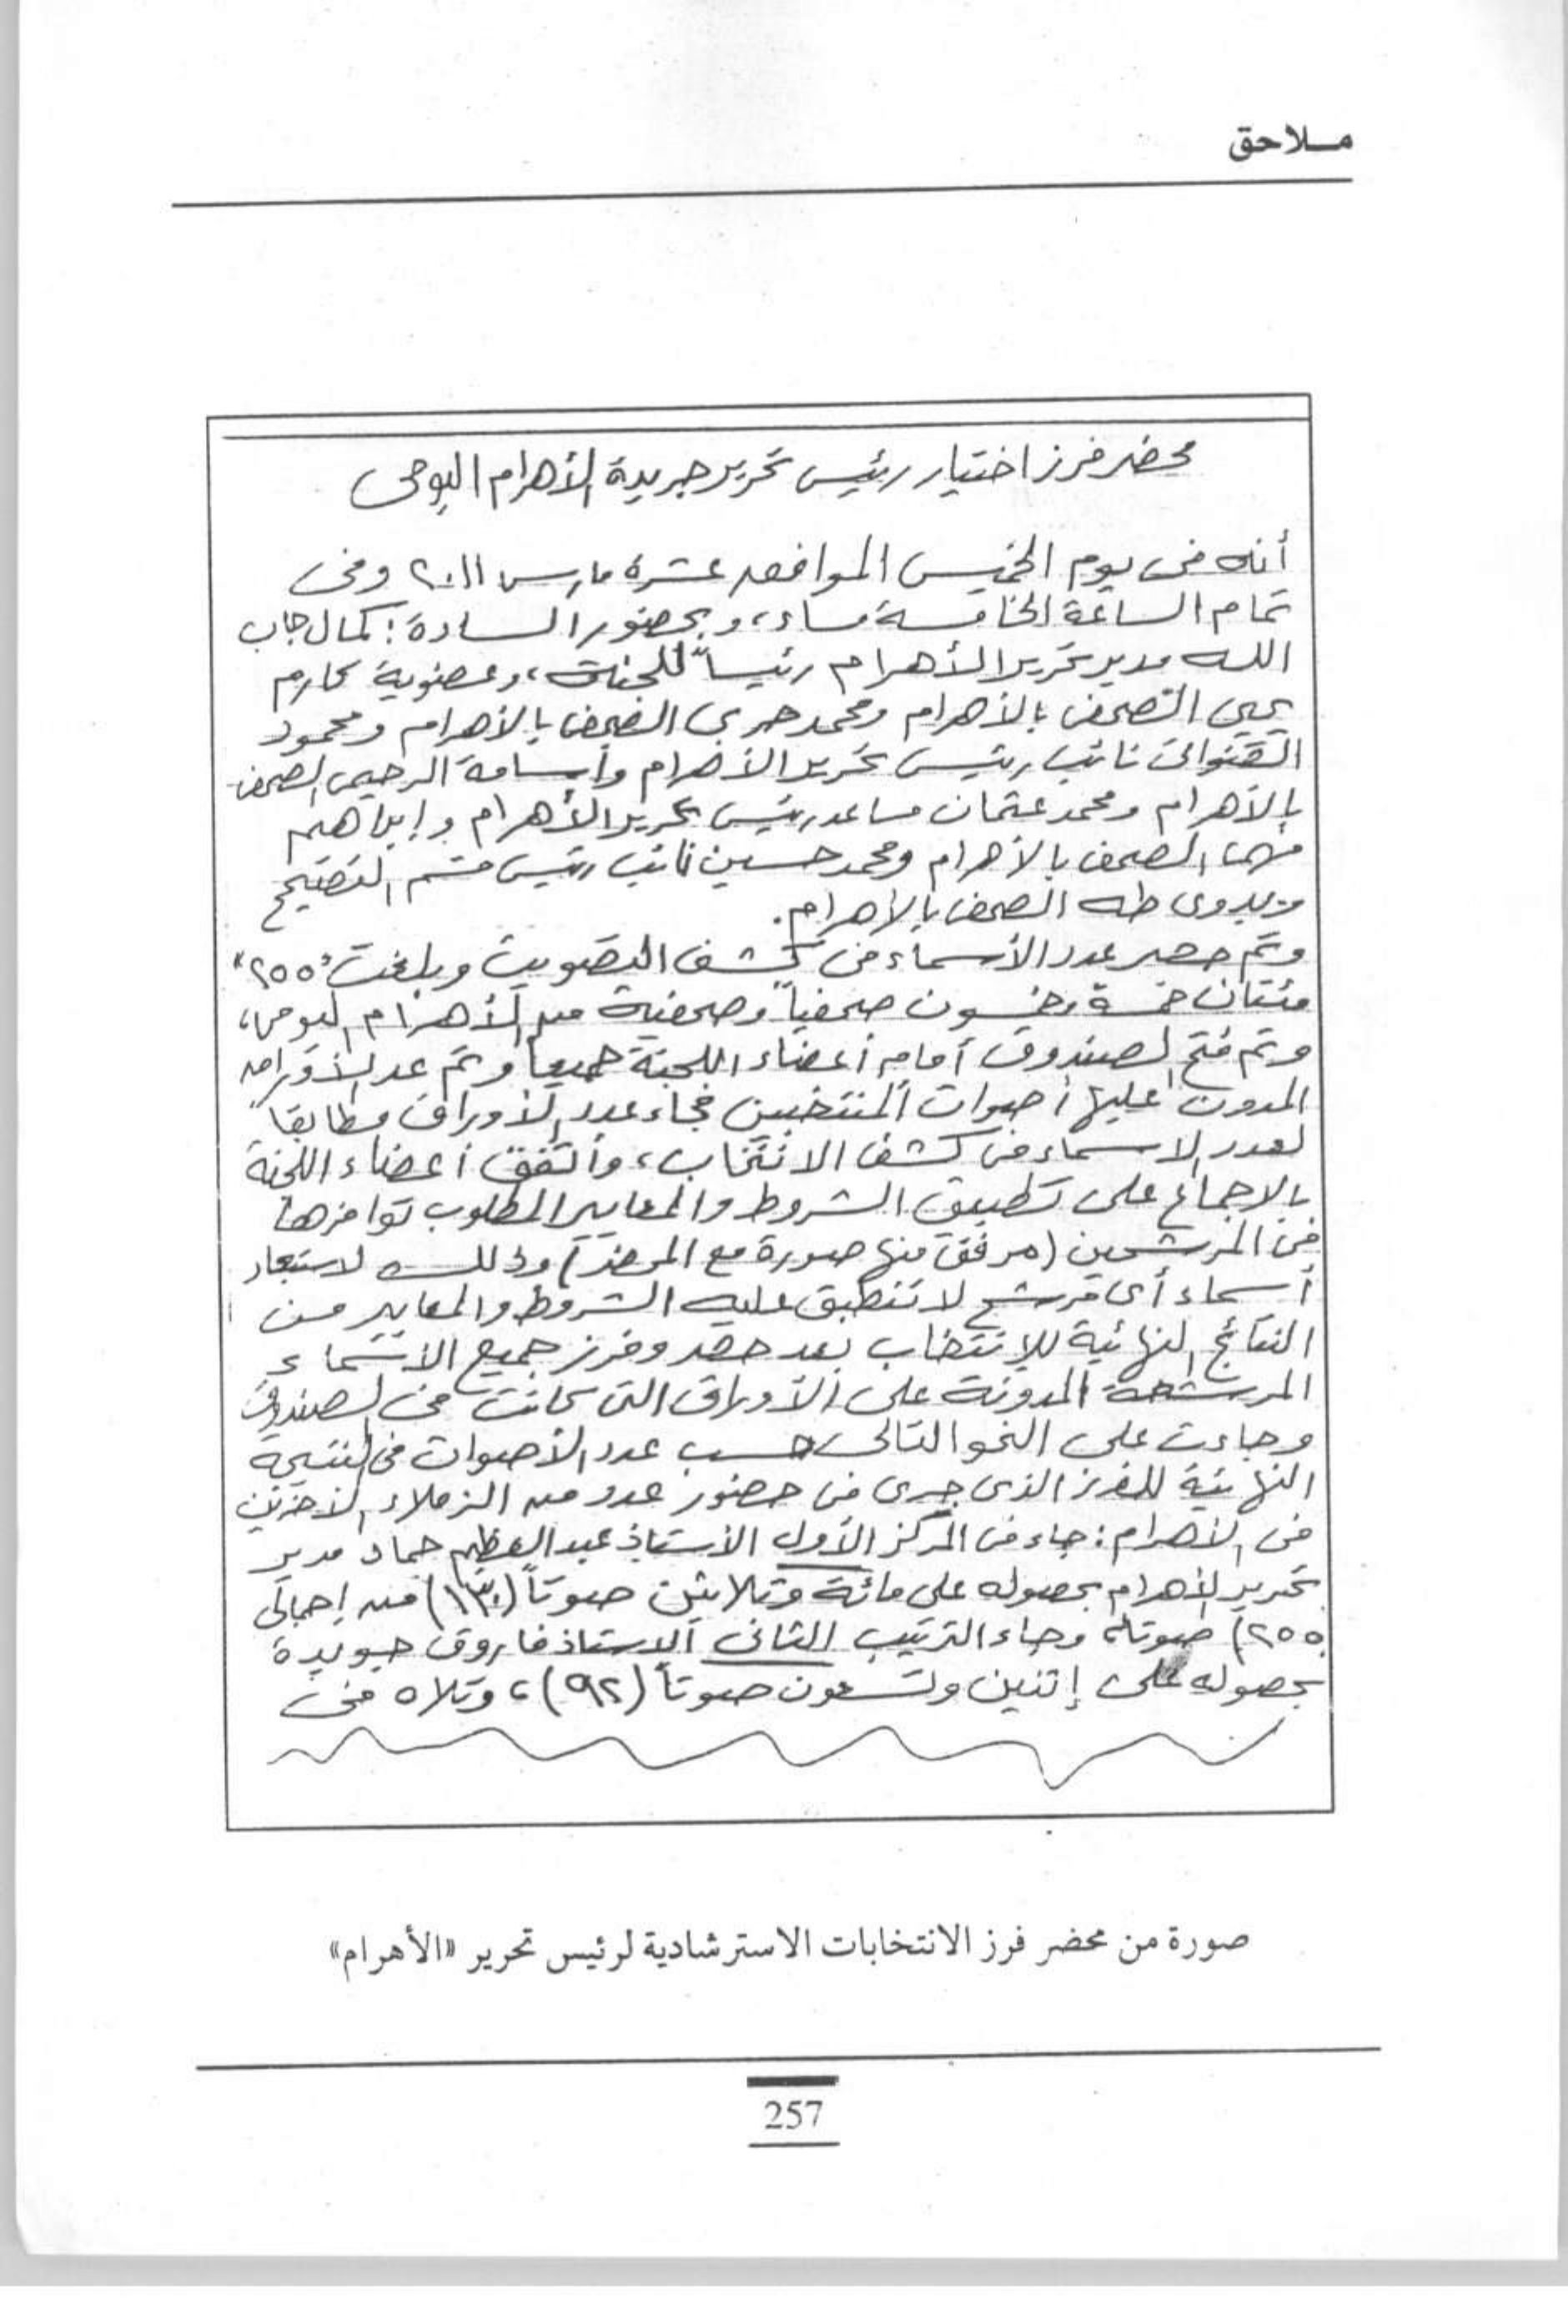 ملاحق
محضر فرز اختيار رئيس تحرير جريدة الأهرام اليومى
أنه فى يوم الخميس الموافق عشرة مارس ٢٠١١ وفى
تمام الساعة الخامسة مساء، وبحضور السادة: كمال جاب
الله مدير تحرير الأهرام رئيساً للجنة، وعضوية كارم
يحيى الصحفى بالأهرام ومحمد حربى الصحفى بالأهرام ومحمود
القنوائى نائب رئيس تحرير الأهرام وأسامة الرحيمى الصحفى
بالأهرام ومحمد عثمان مساعد رئيس تحرير الأهرام وإبراهيم
مهنا الصحفى بالأهرام ومحمد حسين نائب رئيس قسم التصحيح
وبدوى طه الصحفى بالأهرام.
وتم حصر عدد الأسماء فى كشف التصويت وبلغت "٢٥٥"
مئتان خمسة وخمسون صحفياً وصحفية من الأهرام اليومى،
وتم فتح الصندوق أمام أعضاء اللجنة جميعاً وتم عد الأوراق
المدون عليها أصوات المنتخبين فجاء عدد الأوراق مطابقاً
لعدد الاسماء فى كشف الانتخاب، وأتفق أعضاء اللجنة
بالاجماع على تطبيق الشروط والمعايير المطلوب توافرها
فى المرشحين (مرفق منها صورة مع المحضر) وذلك لاستبعاد
أسماء أى مرشح لا تنطبق عليه الشروط والمعايير من
النتائج النهائية للإنتخاب بعد حصر وفرز جميع الاسماء
المرشحة المدونة على الأوراق التى كانت فى الصندوق
وجاءت على النحو التالى حسب عدد الأصوات فى النتيجة
النهائية للفرز الذى جرى فى حضور عدد من الزملاء الآخرين
فى الأهرام: جاء فى المركز الأول الأستاذ عبد العظيم حماد مدير
تحرير الأهرام بحصوله على مائة وثلاثين صوتاً (١٣٠) من إجمالى
٢٥٥) صوتاً، وجاء الترتيب الثانى الاستاذ فاروق جويدة
بحصوله على إثنين وتسعون صوتاً (٩٢)، وتلاه فى
صورة من محضر فرز الانتخابات الاسترشادية لرئيس تحرير «الأهرام»
257